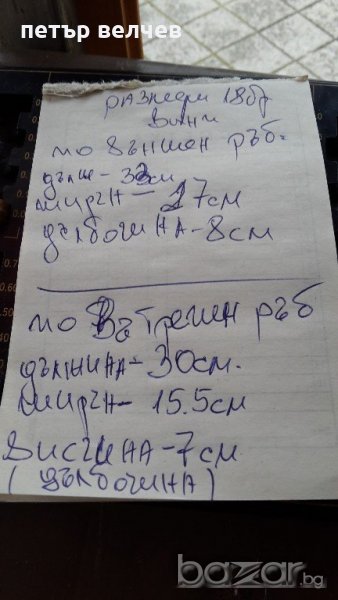 петър велчев
размери 18бр
ванни
по външен ръб.
дълж- 33см
ширин- 17см
дълбочина-8см
по вътрешен ръб
дължина-30см.
ширин- 15.5см
височина-7см
(дълбочина)
bazar.bg